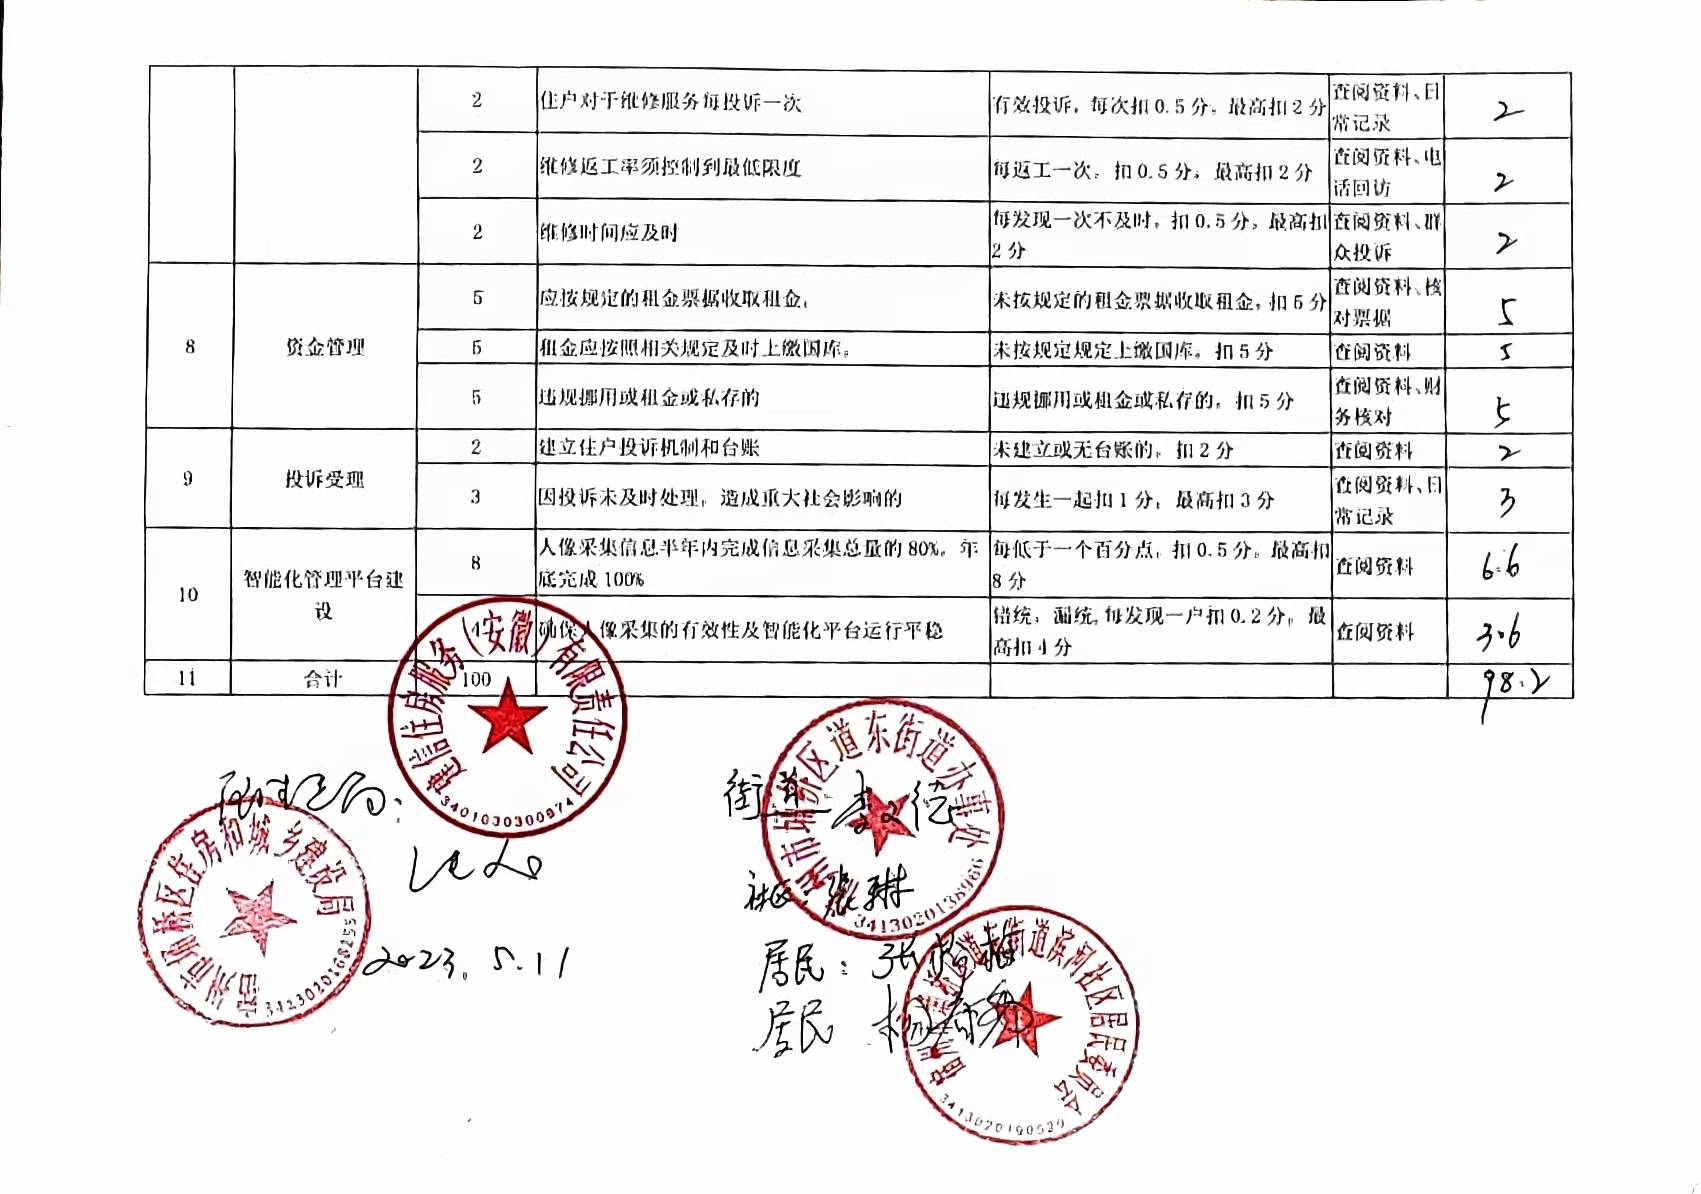 2 住户对于维修服务每投诉一次 有效投诉，每次扣0.5分，最高扣2分 查阅资料、日常记录 2
2 维修返工率须控制到最低限度 每返工一次，扣0.5分，最高扣2分 查阅资料、电话回访 2
2 维修时间应及时 每发现一次不及时，扣0.5分，最高扣2分 查阅资料、群众投诉 2
8 资金管理 5 应按规定的租金票据收取租金， 未按规定的租金票据收取租金，扣5分 查阅资料、核对票据 5
5 租金应按照相关规定及时上缴国库。 未按规定规定上缴国库，扣5分 查阅资料 5
5 违规挪用或租金或私存的 违规挪用或租金或私存的，扣5分 查阅资料、财务核对 5
9 投诉受理 2 建立住户投诉机制和台账 未建立或无台账的，扣2分 查阅资料 2
3 因投诉未及时处理，造成重大社会影响的 每发生一起扣1分，最高扣3分 查阅资料、日常记录 3
10 智能化管理平台建设 8 人像采集信息半年内完成信息采集总量的80%，年底完成100% 每低于一个百分点，扣0.5分。最高扣8分 查阅资料 6.6
4 确保人像采集的有效性及智能化平台运行平稳 错统，漏统，每发现一户扣0.2分，最高扣4分 查阅资料 3.6
11 合计 100 98.2
建信住房服务（安徽）有限责任公司
3401030300974
宿州市埇桥区道东街道办事处
3413020138966
街道 李
社区：张琳
宿州市埇桥区住房和城乡建设局
3423020168255
2023.5.11
居民：张
居民 杨
道东街道滨河社区居民委员会
3413020190529